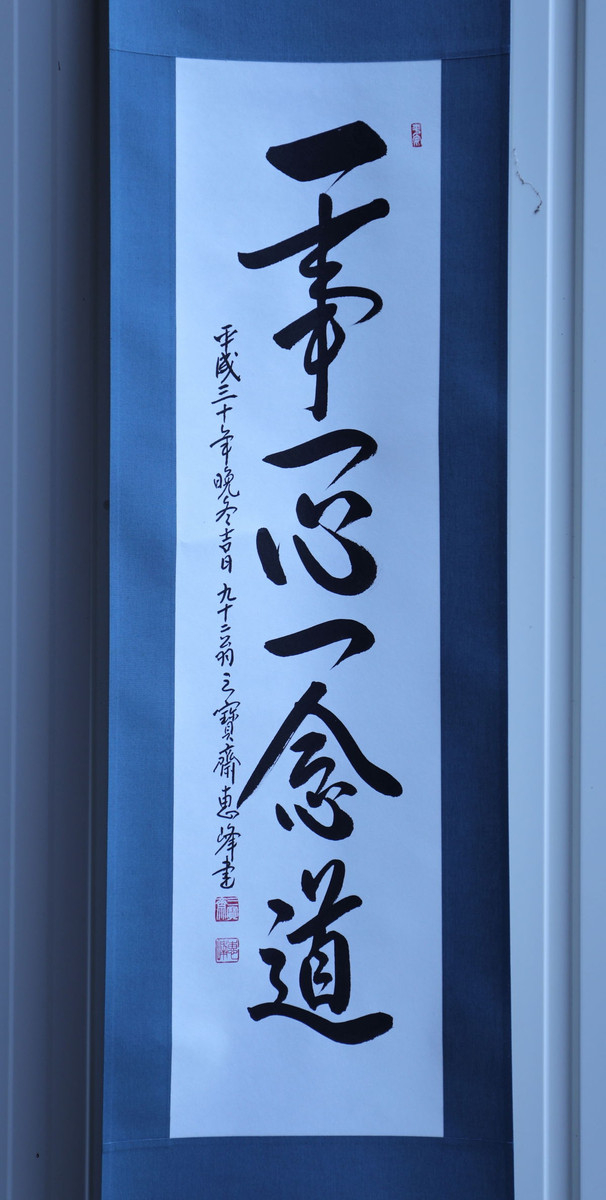 一事一心一念道
平成三十年晩冬吉日 九十二翁 三寶齋惠峰書